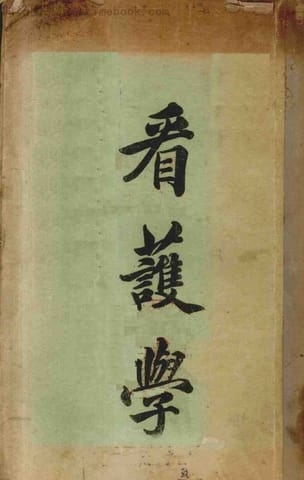 看
護
學